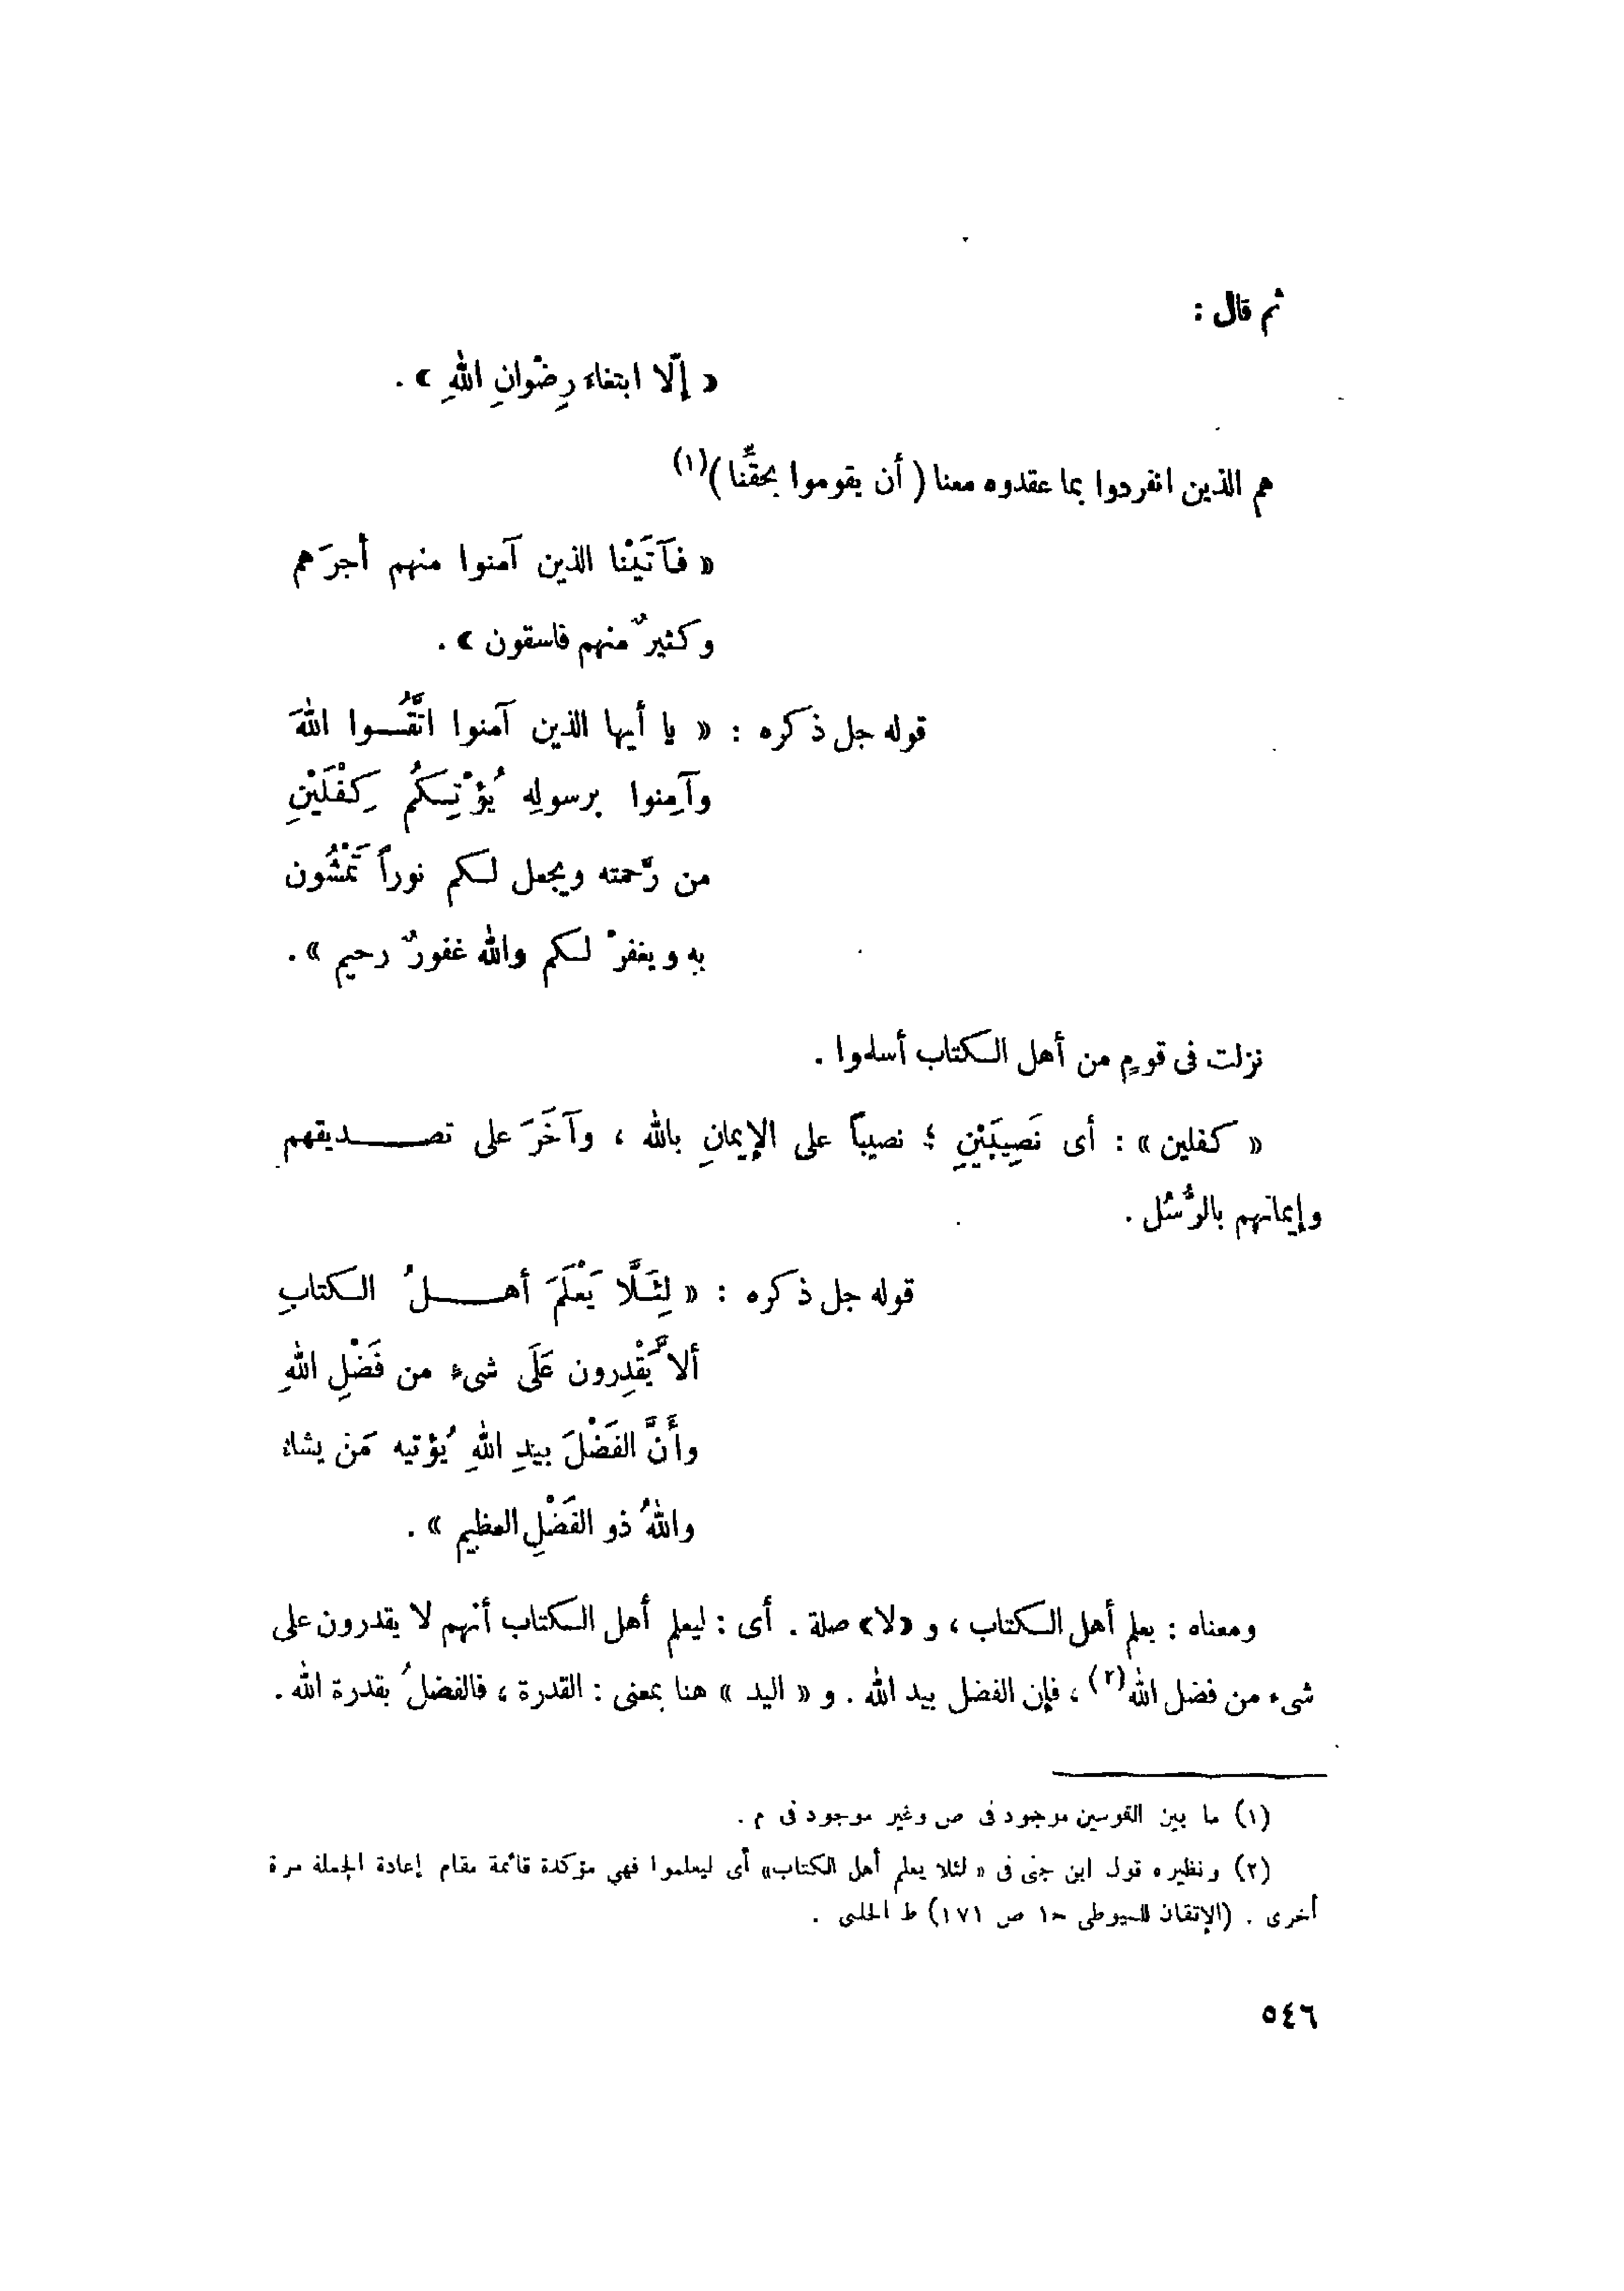 ثم قال :
« إلّا ابتغاءَ رِضْوانِ اللهِ » .
هم الذين انفردوا بما عقدوه معنا ( أن يقوموا بحقِّنا )(١)
« فآتَيْنا الذين آمنوا منهم أجرَهم
وكثيرٌ منهم فاسقون » .
قوله جل ذكره : « يا أيها الذين آمنوا اتَّقُوا اللهَ
وآمِنوا برسولِه يُؤْتِكُم كِفْلَيْنِ
من رَّحمته ويجعل لكم نوراً تَمْشُون
بِه ويغفرْ لكم والله غفورٌ رحيم » .
نزلت فى قومٍ من أهل الكتاب أسلموا .
« كفلين » : أى نَصِيبَيْنِ ؛ نصيباً على الإيمانِ بالله ، وآخَرَ على تصديقهم
وإيمانهم بالرُّسُل .
قوله جل ذكره : « لِئَلَّا يَعْلَمَ أهلُ الكتابِ
ألاَّ يَقْدِرون عَلَى شىءٍ من فَضْلِ اللهِ
وأَنَّ الفَضْلَ بيدِ اللهِ يُؤتيه مَن يشاء
واللهُ ذو الفَضْلِ العظيم » .
ومعناه : يعلم أهل الكتاب ، و «لا» صلة . أى : ليعلم أهل الكتاب أنهم لا يقدرون على
شىء من فضل الله(٢) ، فإن الفضل بيد الله . و « اليد » هنا بمعنى : القدرة ، فالفضلُ بقدرة الله .
(١) ما بين القوسين موجود فى ص وغير موجود فى م .
(٢) ونظيره قول ابن جنى فى « لئلا يعلم أهل الكتاب» أى ليعلموا فهي مؤكدة قائمة مقام إعادة الجملة مرة
أخرى . (الإتقان للسيوطى حـ١ ص ١٧١) ط الحلبى .
٥٤٦